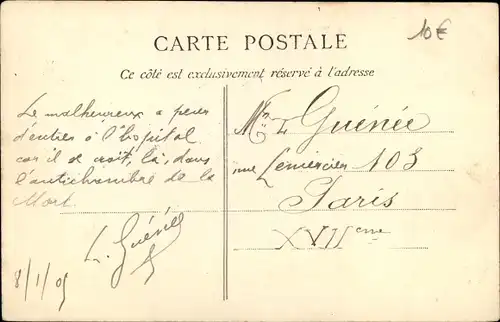 10€
CARTE POSTALE
Ce côté est exclusivement réservé à l'adresse
Le malheureux a peur
d'entrer à l'hopital
car il se croit, là, dans
l'antichambre de la
Mort.
L. Guénée
8/1/05
L Guénée
rue Lemercier 103
Paris
XVII eme